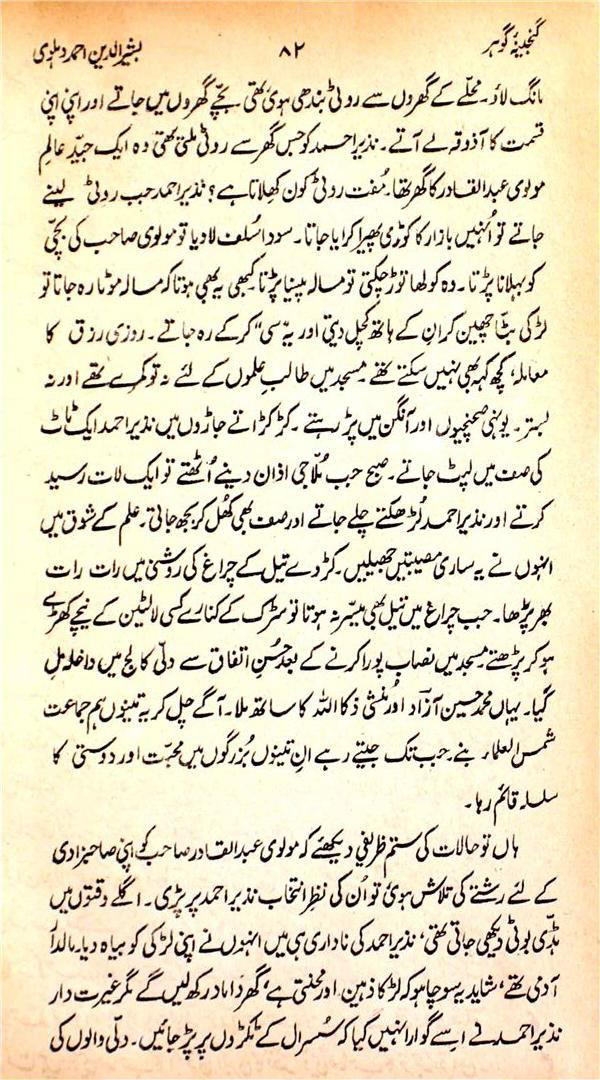 گنجینۂ گوہر ۸۲ بشیر الدین احمد دہلوی
مانگ لاؤ۔ محلّے کے گھروں سے روٹی بندھی ہوئی تھی بچّے گھروں میں جاتے اور اپنی اپنی
قسمت کا آذوقہ لے آتے۔ نذیر احمد کو جس گھر سے روٹی ملتی تھی وہ ایک جیّد عالم
مولوی عبدالقادر کا گھر تھا۔ مُفت روٹی کون کھلاتا ہے؟ نذیر احمد جب روٹی لینے
جاتے تو اُنہیں بازار کا کوڑی پھیرا کرایا جاتا۔ سودا سُلف لا دیا تو مولوی صاحب کی بچّی
کو بہلانا پڑتا۔ وہ کولھا توڑ چکتی تو مسالہ پیسنا پڑتا کبھی یہ بھی ہوتا کہ مسالہ موٹا رہ جاتا تو
لڑکی بٹّا چھین کر ان کے ہاتھ کچل دیتی اور یہ ”سی“ کر کے رہ جاتے۔ روزی رزق کا
معاملہ، کچھ کہہ بھی نہیں سکتے تھے۔ مسجد میں طالب علموں کے لئے نہ تو کمرے تھے اور نہ
بستر۔ یونہی صحنچیوں اور آنگن میں پڑ رہتے۔ کڑکڑاتے جاڑوں میں نذیر احمد ایک ٹاٹ
کی صف میں لپٹ جاتے۔ صبح جب مُلّا جی اذان دینے اُٹھتے تو ایک لات رسید
کرتے اور نذیر احمد لُڑھکتے چلے جاتے اور صف بھی کُھل کر بچھ جاتی۔ علم کے شوق میں
انہوں نے یہ ساری مصیبتیں جھیلیں۔ کڑوے تیل کے چراغ کی روشنی میں رات رات
بھر پڑھا۔ جب چراغ میں تیل بھی میسّر نہ ہوتا تو سڑک کے کنارے کسی لالٹین کے نیچے کھڑے
ہو کر پڑھتے مسجد میں نصاب پورا کرنے کے بعد حُسنِ اتفاق سے دلّی کالج میں داخلہ مل
گیا۔ یہاں محمد حسین آزاد اور مُنشی ذکا اللہ کا ساتھ ملا۔ آگے چل کر یہ تینوں ہم جماعت
شمس العلماء بنے۔ جب تک جیتے رہے ان تینوں بُزرگوں میں محبّت اور دوستی کا
سلسلہ قائم رہا۔
ہاں تو حالات کی ستم ظریفی دیکھئے کہ مولوی عبدالقادر صاحب کو اپنی صاحبزادی
کے لئے رشتے کی تلاش ہوئی تو اُن کی نظرِ انتخاب نذیر احمد پر پڑی۔ اگلے وقتوں میں
ہڈّی بوٹی دیکھی جاتی تھی، نذیر احمد کی ناداری ہی میں انہوں نے اپنی لڑکی کو بیاہ دیا۔ مالدار
آدمی تھے، شاید یہ سوچا ہو کہ لڑکا ذہین اور محنتی ہے، گھر داماد رکھ لیں گے مگر غیرت دار
نذیر احمد نے اسے گوارا نہیں کیا کہ سُسرال کے ٹکڑوں پر پڑ جائیں۔ دلّی والوں کی